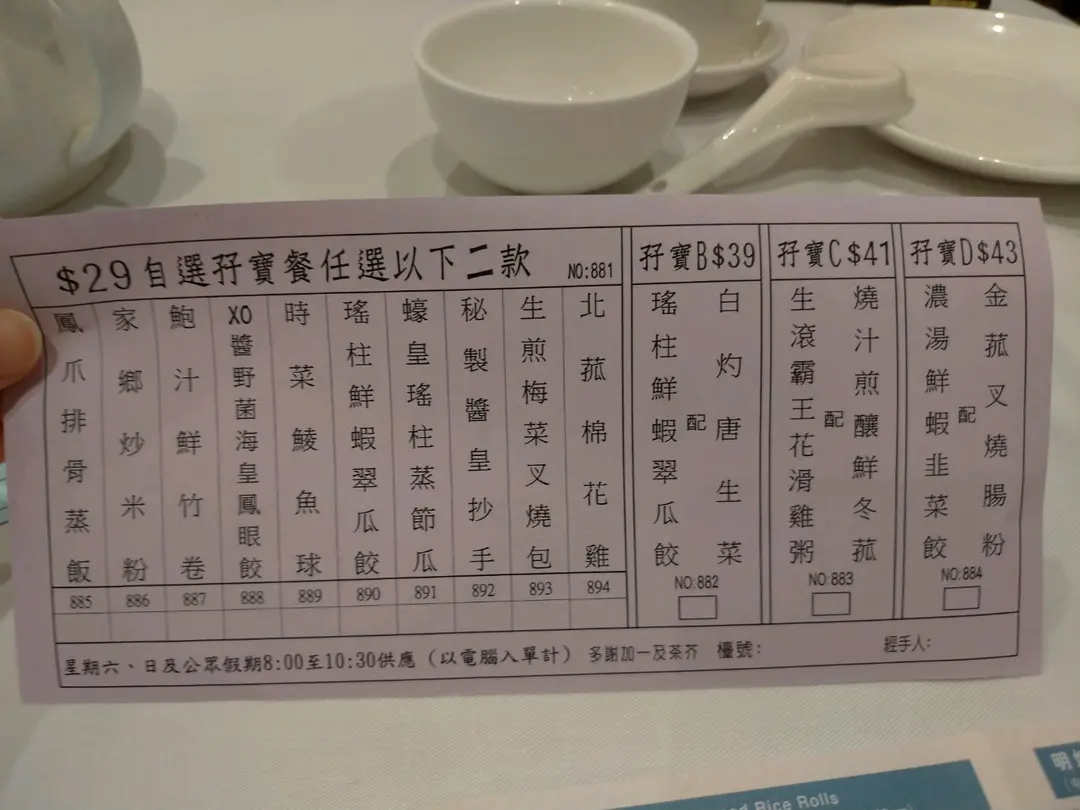 $29自選孖寶餐任選以下二款 NO:881
鳳爪排骨蒸飯
家鄉炒米粉
鮑汁鮮竹卷
XO醬野菌海皇鳳眼餃
時菜鯪魚球
瑤柱鮮蝦翠瓜餃
蠔皇瑤柱蒸節瓜
秘製醬皇抄手
生煎梅菜叉燒包
北菰棉花雞
885 886 887 888 889 890 891 892 893 894
孖寶B$39
瑤柱鮮蝦翠瓜餃
配
白灼唐生菜
NO:882
孖寶C$41
生滾霸王花滑雞粥
配
燒汁煎釀鮮冬菰
NO:883
孖寶D$43
濃湯鮮蝦韭菜餃
配
金菰叉燒腸粉
NO:884
星期六、日及公眾假期8:00至10:30供應（以電腦入單計） 多謝加一及茶芥 檯號: 經手人:
Rice Rolls
明